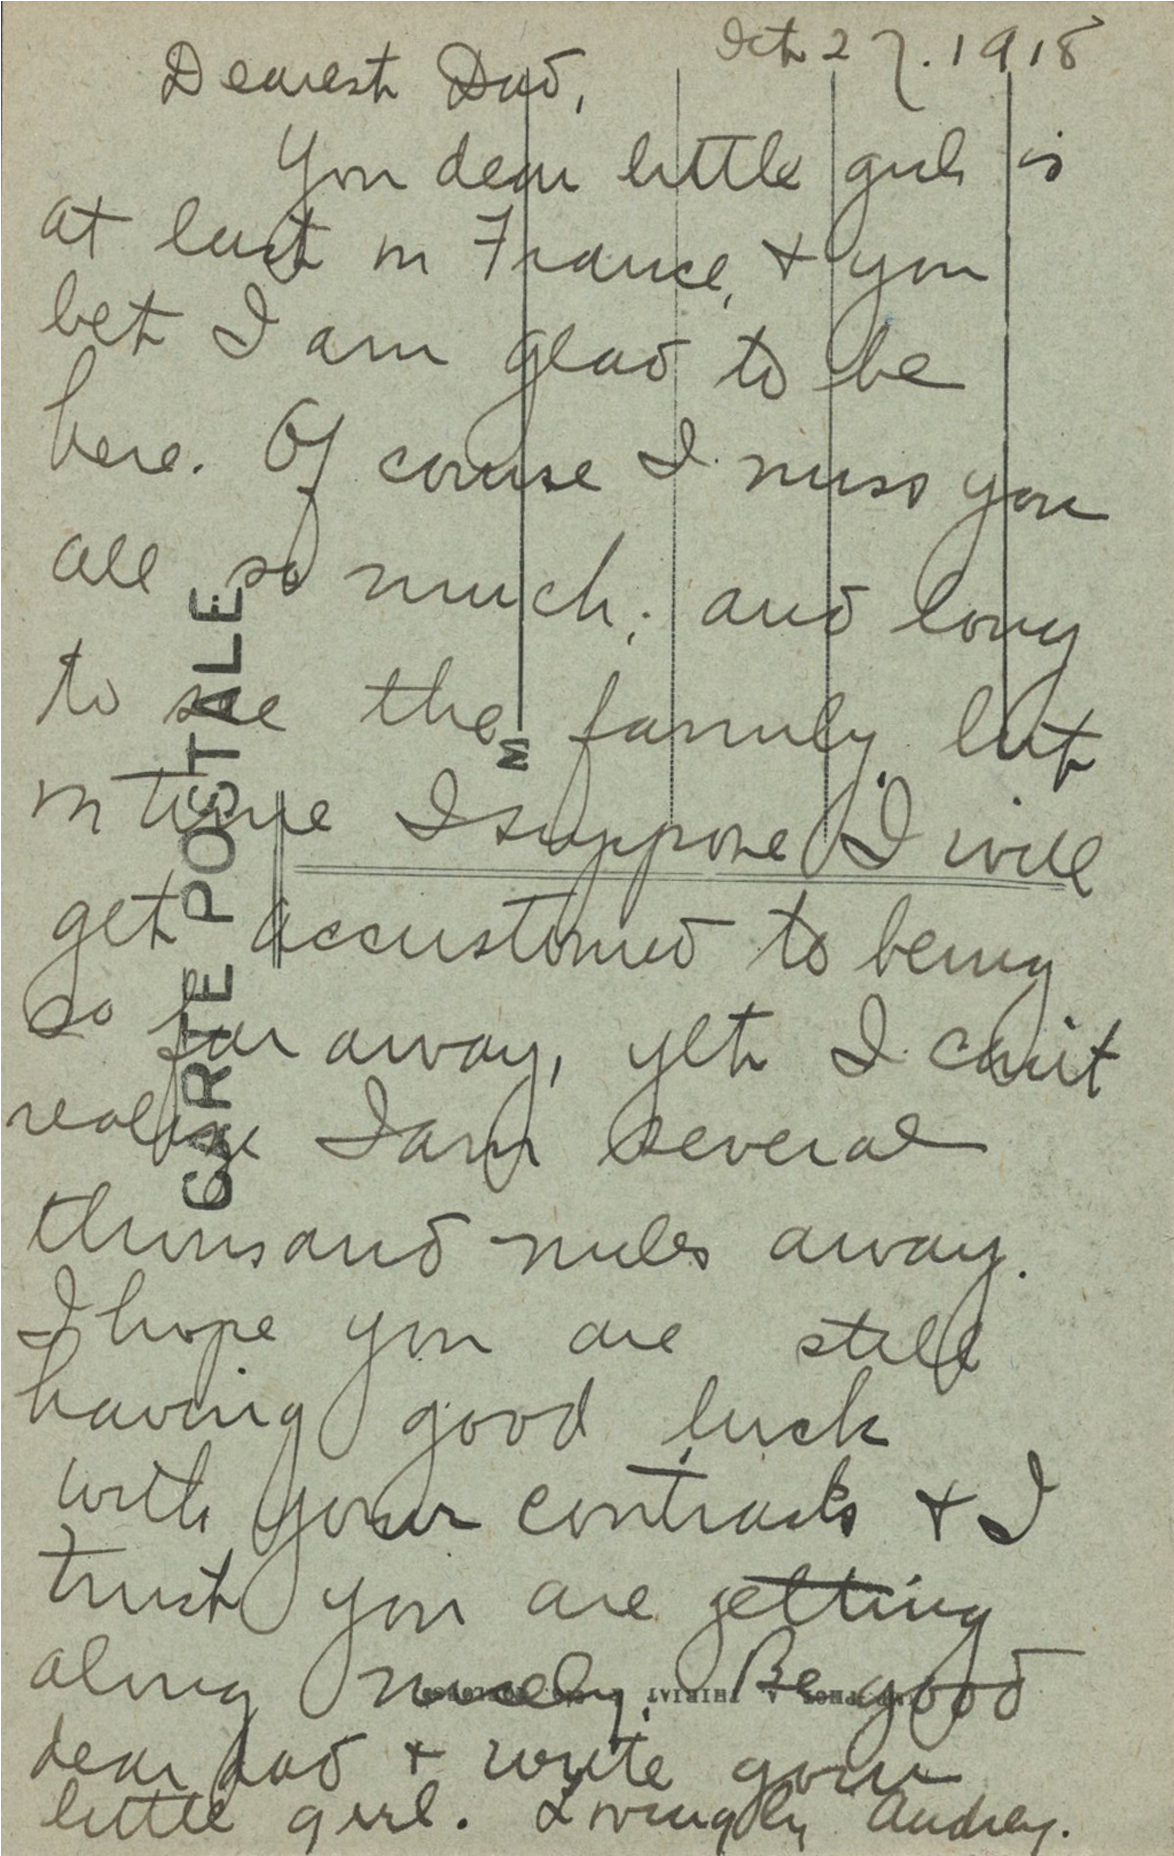 Oct 27. 1918
Dearest Dad,
You dear little girl is
at last in France, + you
bet I am glad to be
here. Of course I miss you
all so much; and long
to see the family, but
in time I suppose I will
get accustomed to being
so far away, yet I can't
realize I am several
thousand miles away.
I hope you are still
having good luck
with your contracts + I
trust you are getting
along nicely. Be good
dear dad + write your
little girl. Lovingly Audrey.
CARTE POSTALE
M